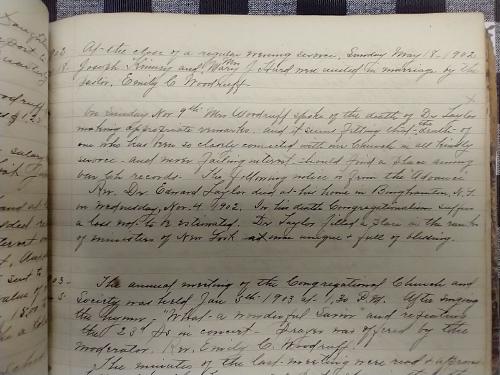 At the close of a regular evening service, Sunday May 18, 1902
Joseph Kinney and Mrs Mary J. Hard were united in marriage by the
pastor, Emily C Woodruff.
On Sunday Nov 9th Mrs Woodruff spoke of the death of Dr Taylor
making appropriate remarks, and it seems fitting that the death of
one who has been so closely connected with our Church in all kindly
service and never failing interest should find a place among
our Ch records. The following notice is from the Advance
Rev. Dr. Edward Taylor died at his home in Binghamton, N.Y.
on Wednesday, Nov. 4 1902. In his death Congregationalism suffers
a loss not to be estimated. Dr Taylor filled a place in the ranks
of ministers of New York unique & full of blessing.
The annual meeting of the Congregational Church and
Society was held Jan 5th 1903 at 1,30 P.M. After singing
the hymn, "What a wonderful Savior" and repeating
the 23d Ps in concert. Prayer was offered by the
moderator, Rev. Emily C. Woodruff.
The minutes of the last meeting were read & approv